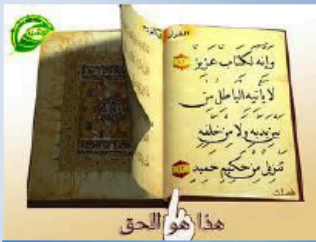 وَإِنَّهُ لَكِتَابٌ عَزِيزٌ
لَا يَأْتِيهِ الْبَاطِلُ مِن
بَيْنِ يَدَيْهِ وَلَا مِنْ خَلْفِهِ
تَنزِيلٌ مِّنْ حَكِيمٍ حَمِيدٍ
فصلت
هذا هو الحق